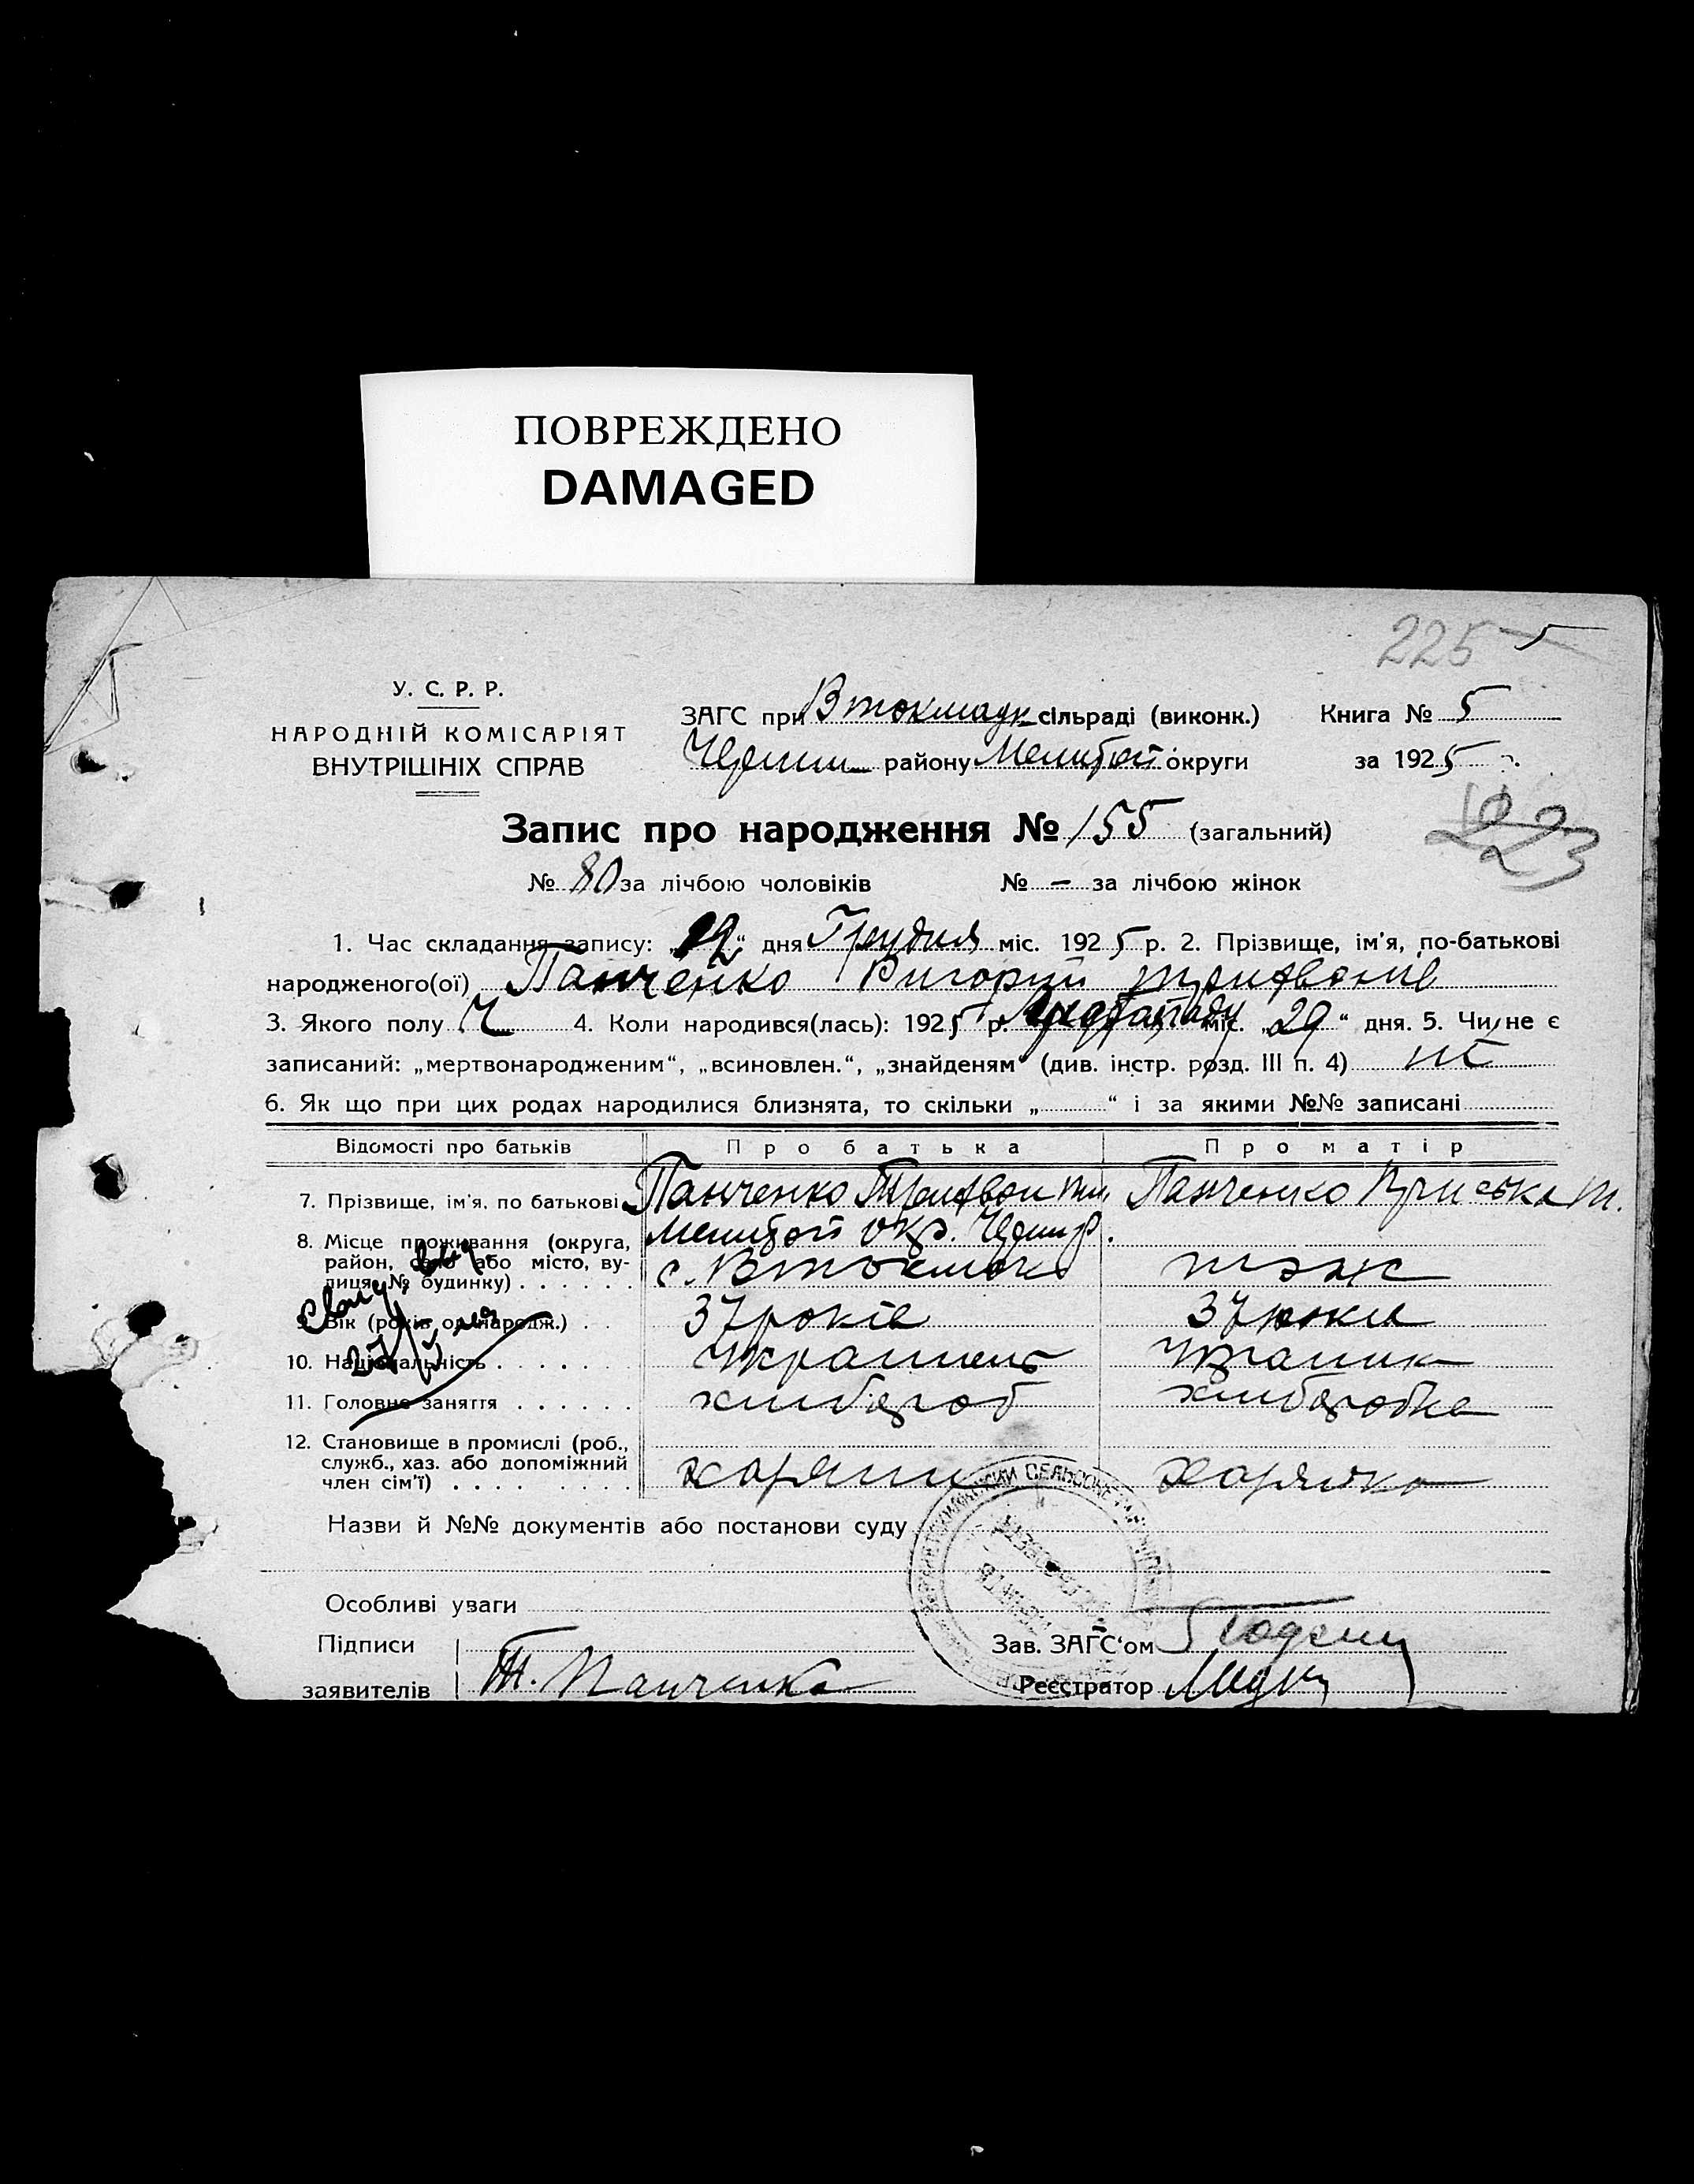 ПОВРЕЖДЕНО
DAMAGED
225 5
У. С. Р. Р.
НАРОДНІЙ КОМІСАРІЯТ
ВНУТРІШНІХ СПРАВ
ЗАГС при В токмацк сільраді (виконк.) Книга № 5
району округи за 1925 р.
Запис про народження № 155 (загальний)
223
№ 80 за лічбою чоловіків № — за лічбою жінок
1. Час складання запису: „12“ дня Грудня міс. 1925 р. 2. Прізвище, ім'я, по-батькові
народженого(ої) Панченко Григорій
3. Якого полу Ч 4. Коли народився(лась): 1925 р. міс. „29“ дня. 5. Чи не є
записаний: „мертвонародженим“, „всиновлен.“, „знайденям“ (див. інстр. розд. III п. 4) ні
6. Як що при цих родах народилися близнята, то скільки „ “ і за якими №№ записані
Відомості про батьків Про батька Про матір
7. Прізвище, ім'я, по батькові Панченко Панченко
8. Місце проживання (округа,
район, село або місто, ву-
лиця, № будинку) . . . . . с. В токмак теж
9. Вік (років од народж.) . . 37 років 37 роки
10. Національність . . . . . . Українець
11. Головне заняття . . . . . . хлібороб хліборобка
12. Становище в промислі (роб.,
служб., хаз. або допоміжний
член сім'ї) . . . .  . . . .
Назви й №№ документів або постанови суду
Особливі уваги
Підписи Зав. ЗАГС'ом
заявителів Т. Панченко Реєстратор